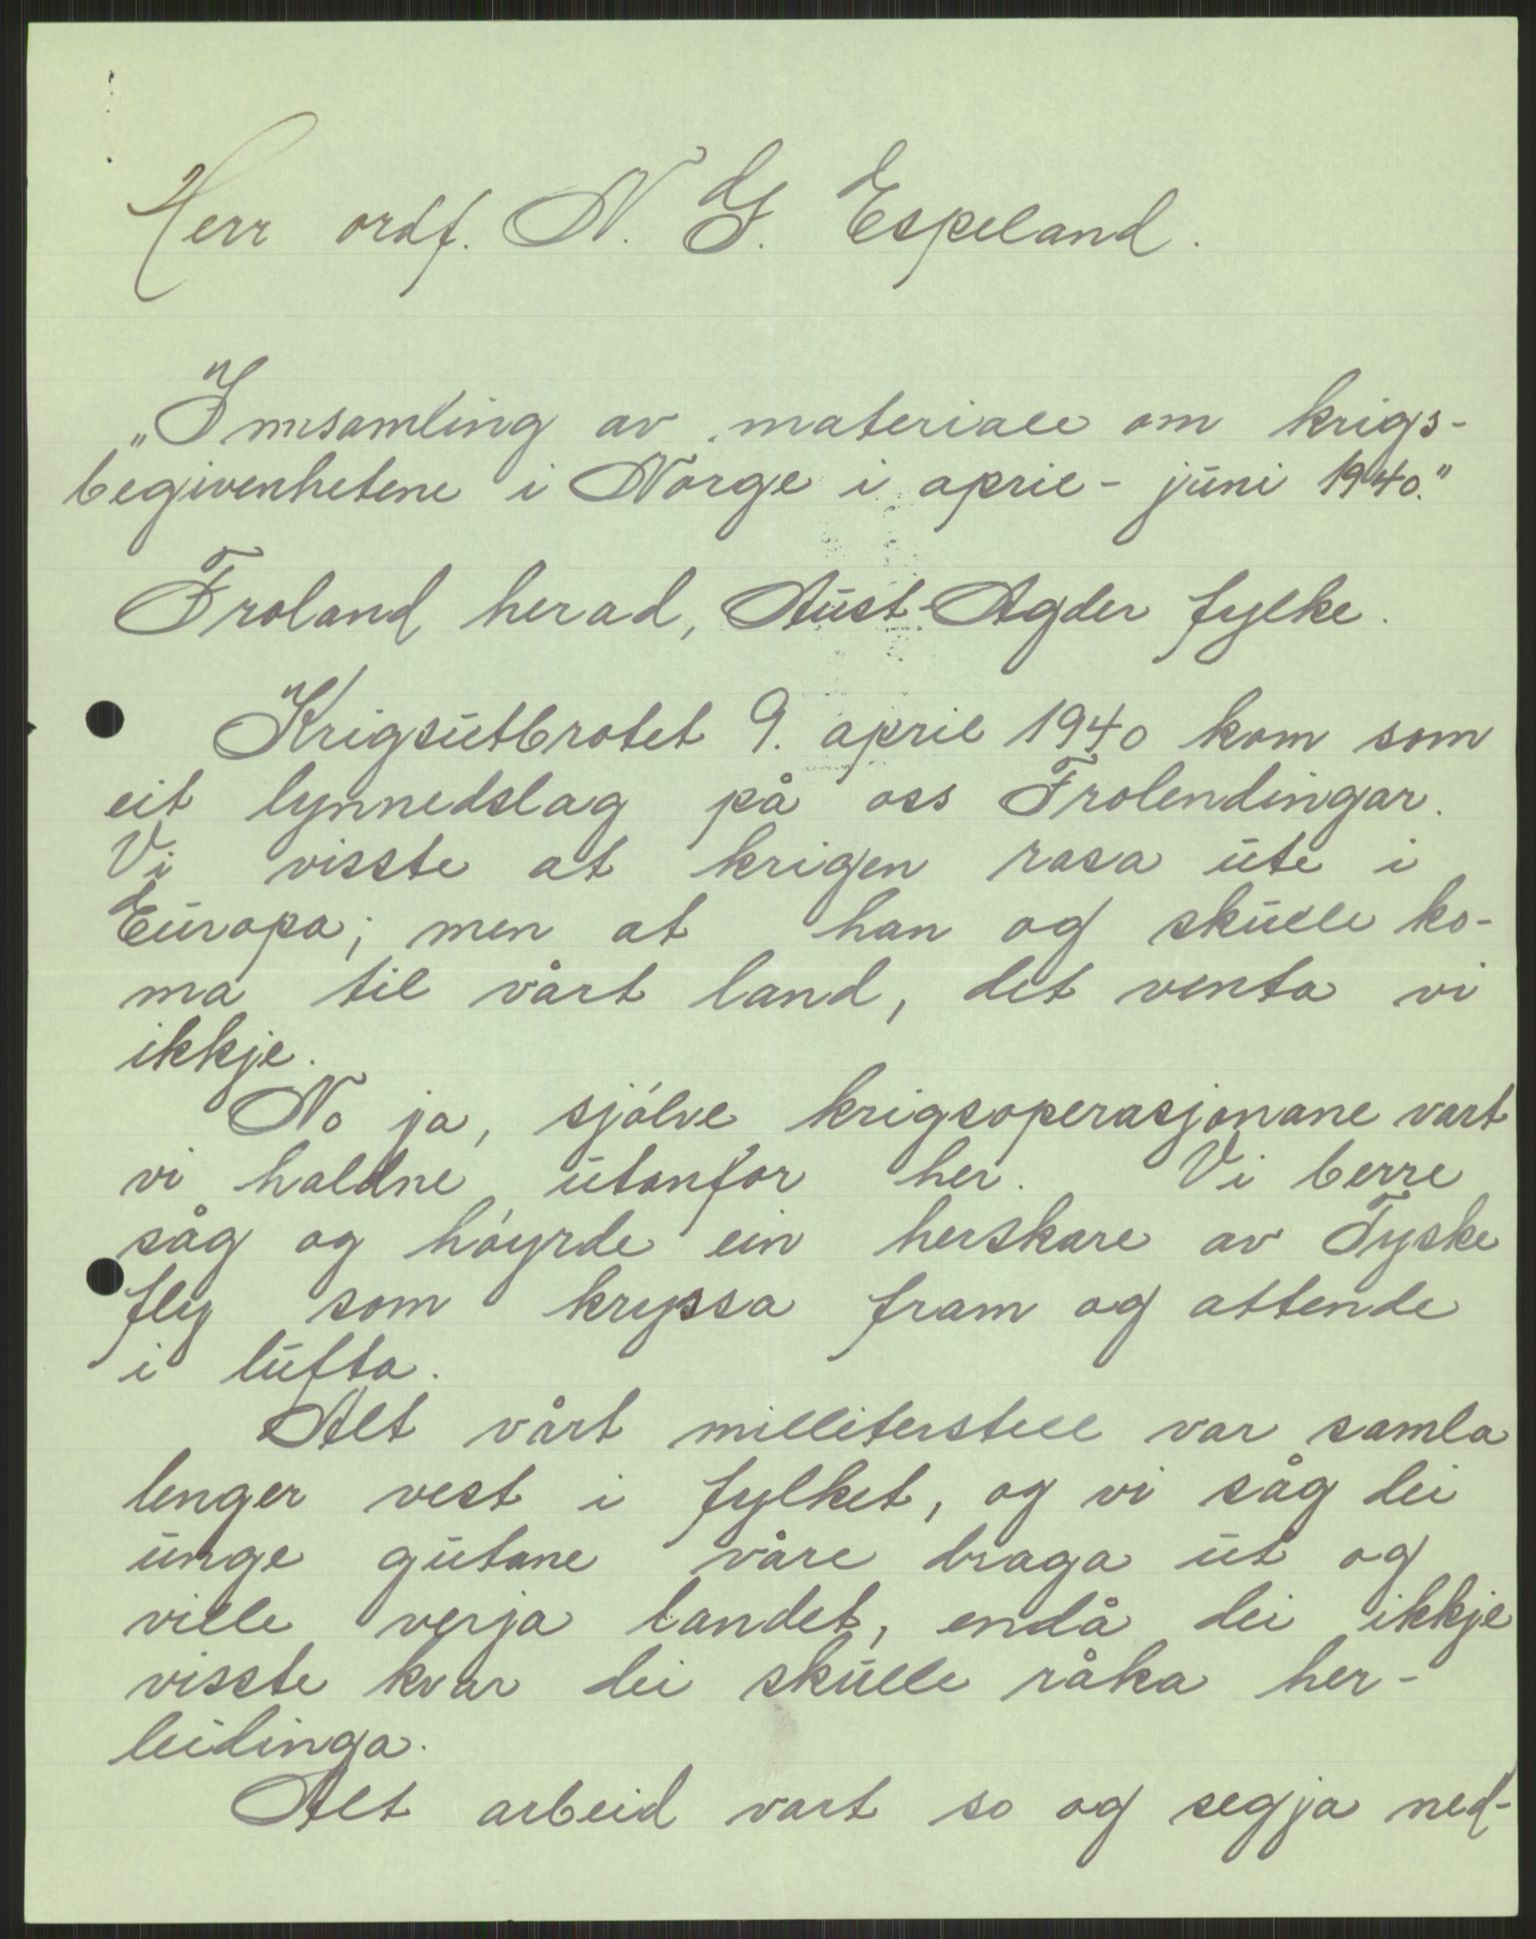 Herr ordf. N. G. Espeland.
„Innsamling av materiale om krigs-
begivenhetene i Norge i april - juni 1940."
Froland herad, Aust-Agder fylke.
Krigsutbrotet 9. april 1940 kom som
eit lynnedslag på oss Frolendingar.
Vi visste at krigen rasa ute i
Europa; men at han og skulle ko-
ma til vårt land, det venta vi
ikkje.
No ja, sjólve krigsoperasjonane vart
vi haldne utanfor her. Vi berre
såg og hóyrde ein herskare av Tyske
fly som kryssa fram og attende
i lufta.
Alt vårt milliterstell var samla
lenger vest i fylket, og vi såg dei
unge gutane våre draga ut og
ville verja landet, endå dei ikkje
visste kvar dei skulle råka her-
leidinga.
Alt arbeid vart so og segja ned-